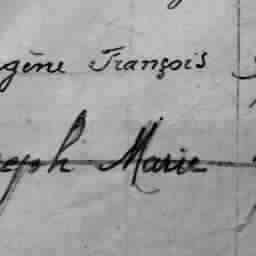 gène François
eph Marie